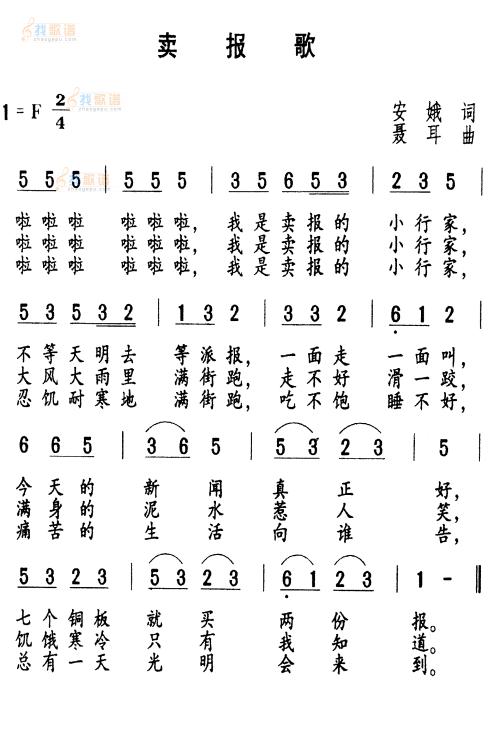 找歌谱
zhaogepu.com
卖 报 歌
找歌谱
zhaogepu.com
1=F 2/4
安 娥 词
聂 耳 曲
找歌谱
5 5 5 5 | 5 5 5 | 3 5 6 5 3 | 2 3 5 |
啦啦啦 啦啦啦, 我是卖报的 小行家,
啦啦啦 啦啦啦, 我是卖报的 小行家,
啦啦啦 啦啦啦, 我是卖报的 小行家,
5 3 5 3 2 | 1 3 2 | 3 3 2 | 6 1 2 |
不等天明去 等派报, 一面走 一面叫,
大风大雨里 满街跑, 走不好 滑一跤,
忍饥耐寒地 满街跑, 吃不饱 睡不好,
6 6 5 | 3 6 5 | 5 3 2 3 | 5 |
今天的 新闻真正 好,
满身的 泥水惹人 笑,
痛苦的 生活向谁 告,
5 3 2 3 | 5 3 2 3 | 6 1 2 3 | 1 - ‖
七个铜板 就买 两份 报。
饥饿寒冷 只有 我知 道。
总有一天 光明 会来 到。